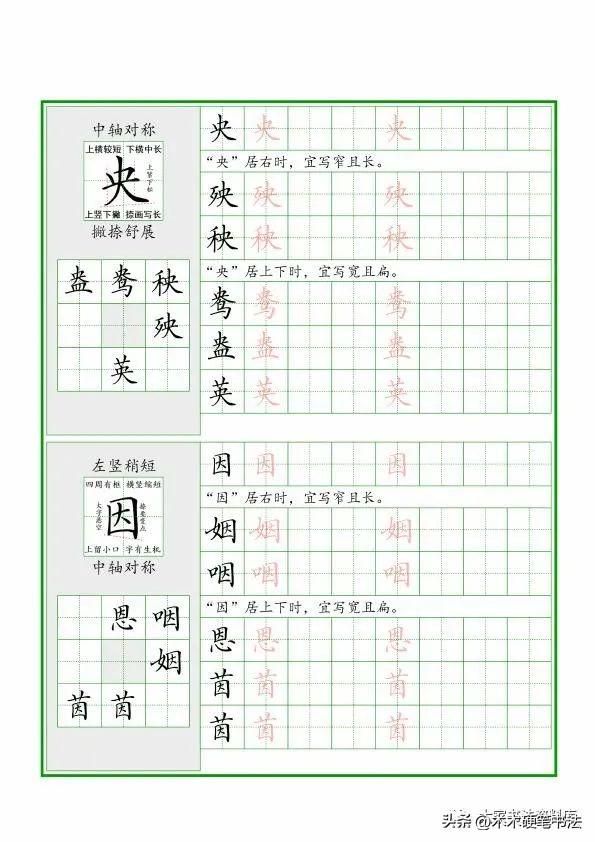 中轴对称
上横较短 下横中长
央
上竖下撇 捺画写长
撇捺舒展
盎 鸯 秧
殃
英
央 央 央
“央”居右时，宜写窄且长。
殃 殃 殃
秧 秧 秧
“央”居上下时，宜写宽且扁。
鸯 鸯 鸯
盎 盎 盎
英 英 英
左竖稍短
四周有框 横竖缩短
大字悬空
因
上留小口 字有生机
中轴对称
恩 咽
姻
茵 茵
因 因 因
“因”居右时，宜写窄且长。
姻 姻 姻
咽 咽 咽
“因”居上下时，宜写宽且扁。
恩 恩 恩
茵 茵 茵
茵 茵 茵
头条 @木木硬笔书法